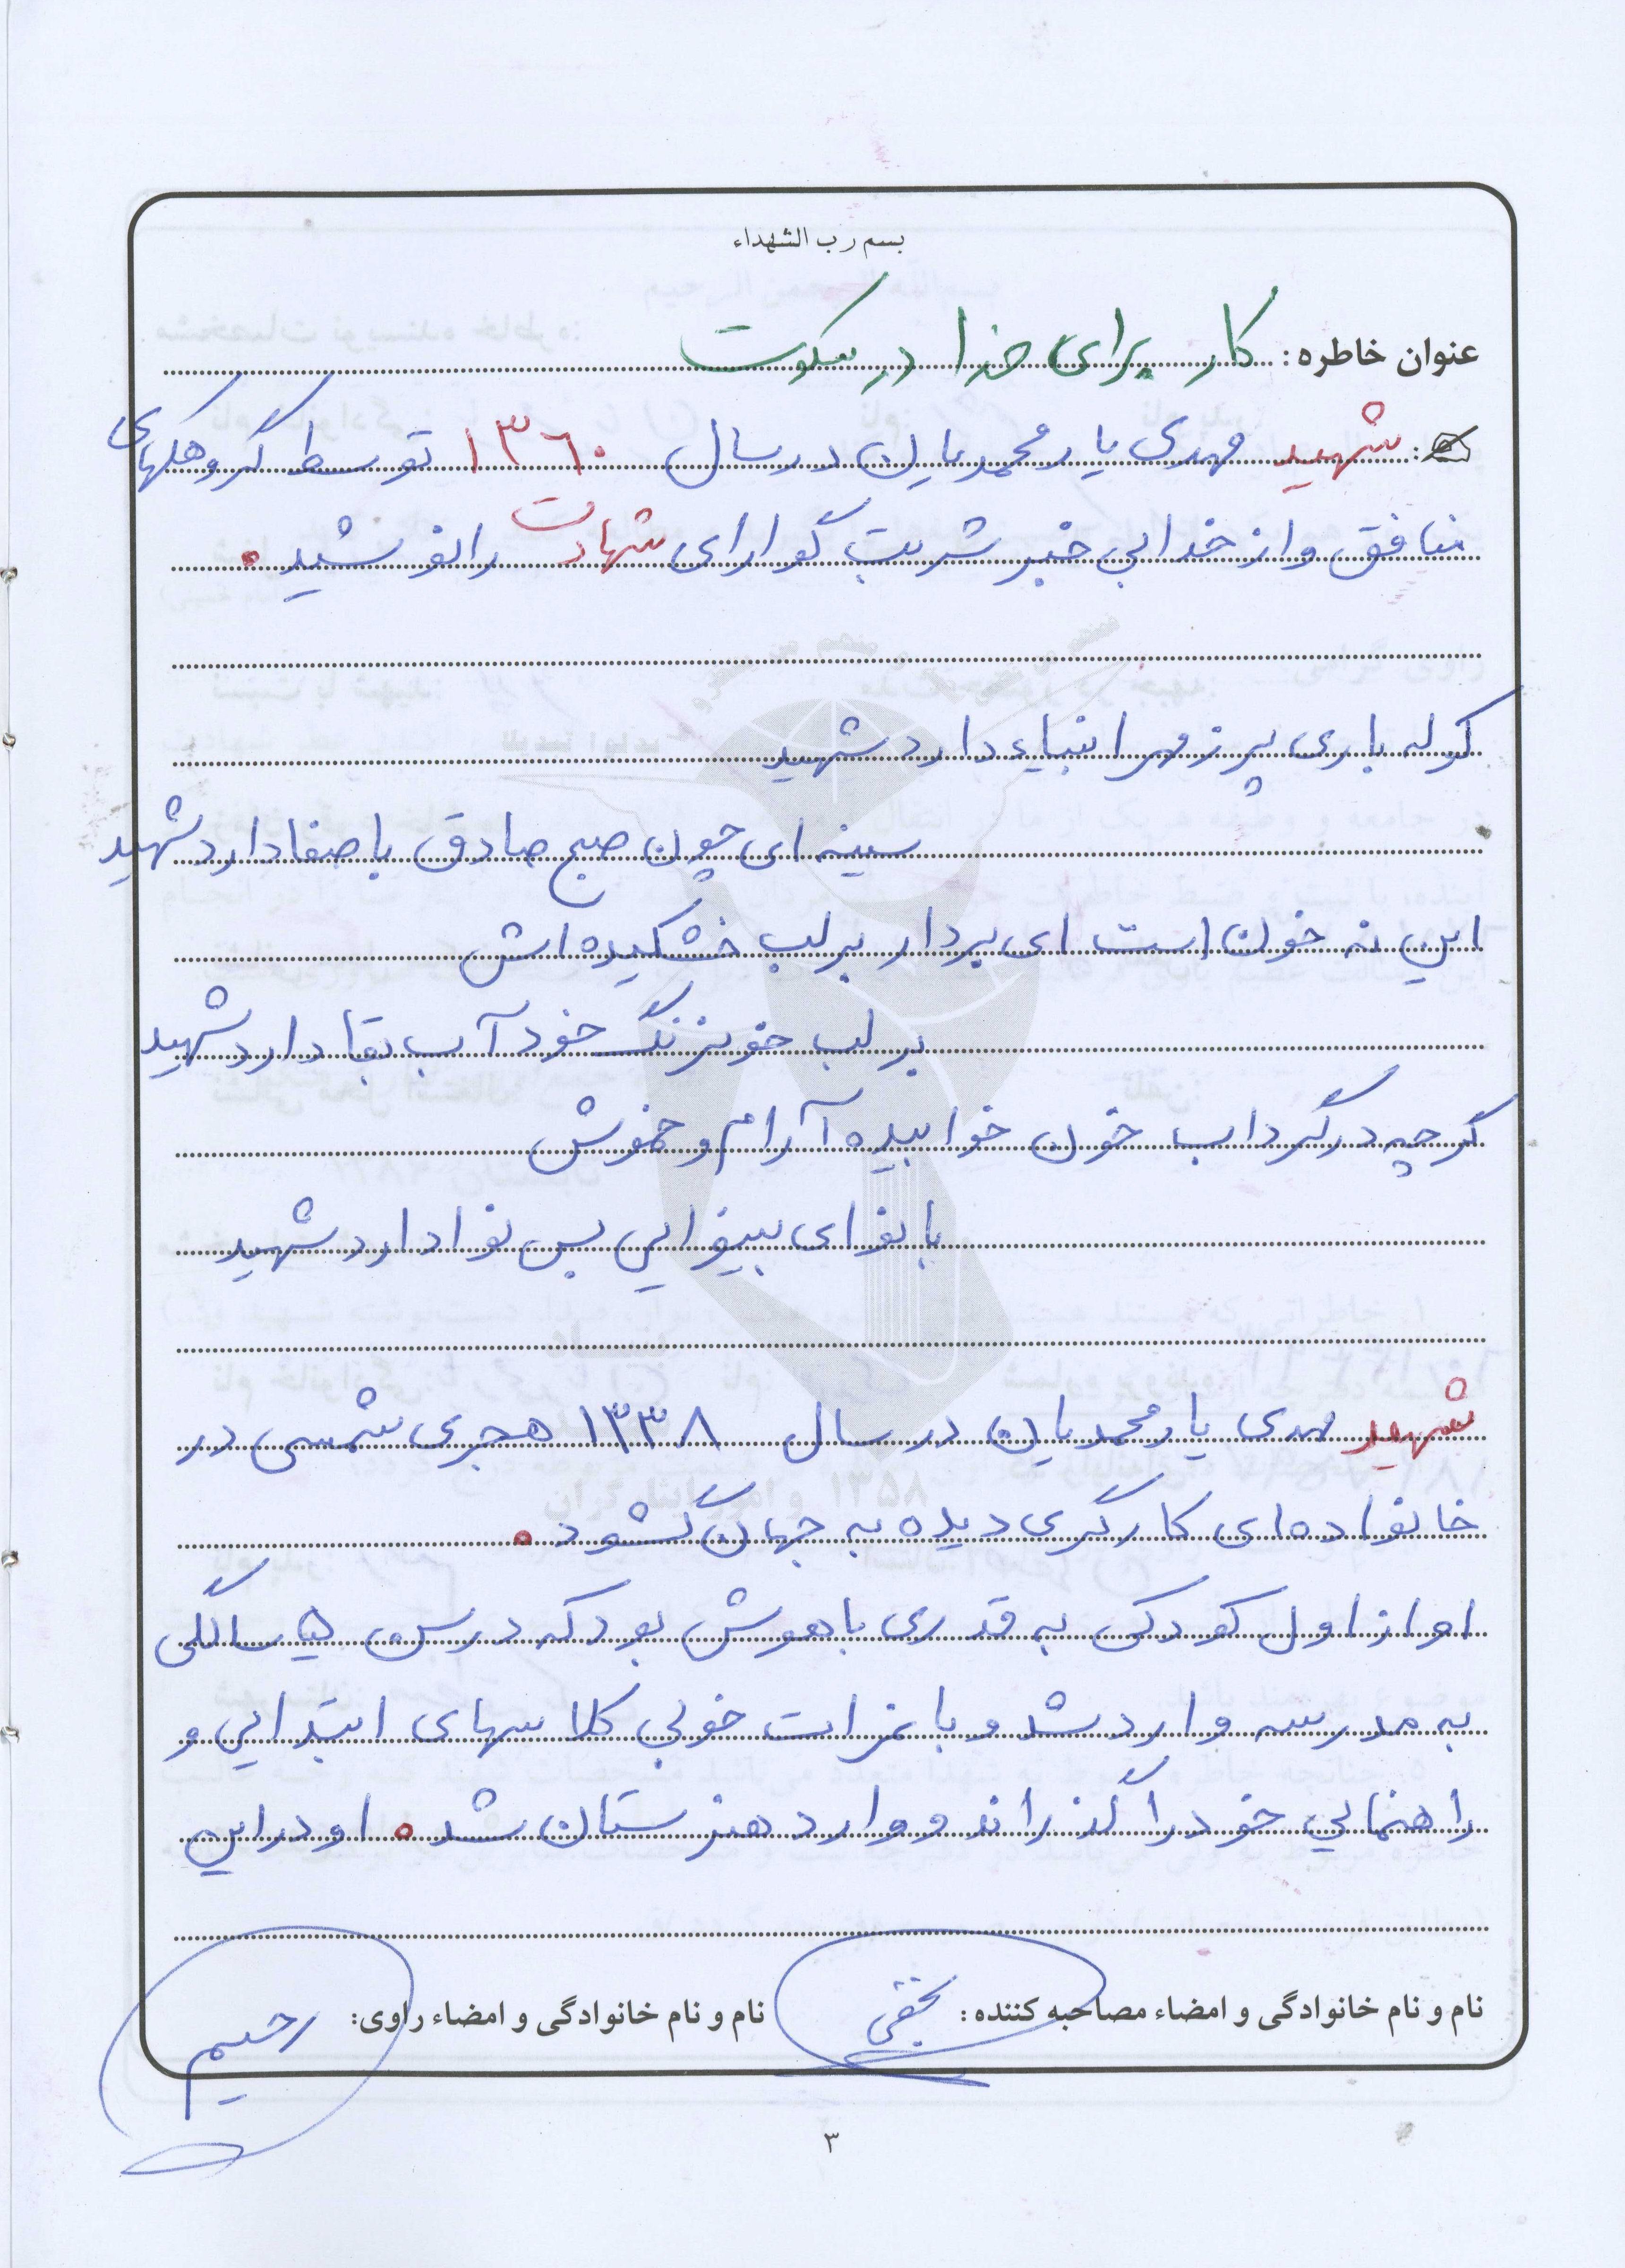 بسم رب الشهداء
عنوان خاطره: کار برای خدا در سکوت
شهید مهدی یارمحمدیان در سال ۱۳۶۰ توسط گروهکهای
منافق و از خدا بی خبر شربت گوارای شهادت را نوشید.
کوله باری پر ز مهر انبیاء دارد شهید
سینه ای چون صبح صادق با صفا دارد شهید
این نه خون است ای بردار بر لب خشکیده اش
بر لب خونرنگ خود آب بقا دارد شهید
گرچه در گرداب خون خوابیده آرام و خموش
با نوای بینوایی بس نوا دارد شهید
شهید مهدی یارمحمدیان در سال ۱۳۳۸ هجری شمسی در
خانواده ای کارگری دیده به جهان گشود.
او از اول کودکی به قدری باهوش بود که در سن ۵ سالگی
به مدرسه وارد شد و با نمرات خوبی کلاسهای ابتدایی و
راهنمایی خود را گذراند و وارد هنرستان شد. او در این
نام و نام خانوادگی و امضاء مصاحبه کننده: نام و نام خانوادگی و امضاء راوی: رحیم
۳